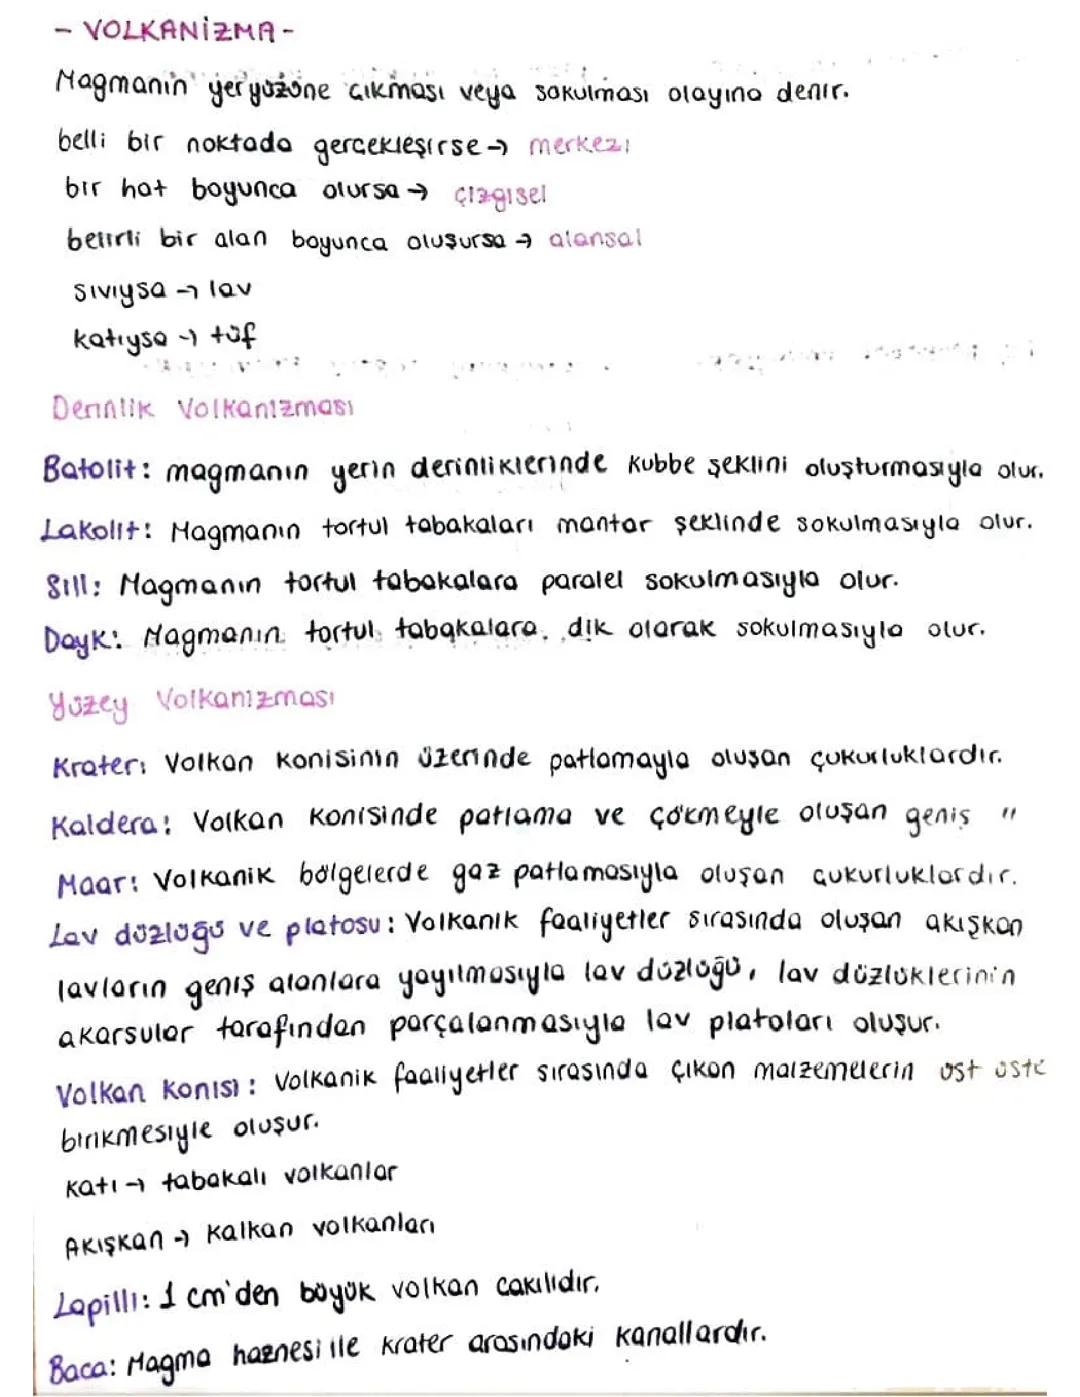 - VOLKANİZMA -
Magmanın yeryüzüne çıkması veya sokulması olayına denir.
belli bir noktada gerçekleşirse → merkezi
bir hat boyunca olursa → çizgisel
belirli bir alan boyunca oluşursa → alansal
sıvıysa → lav
katıysa → tüf
Derinlik Volkanizması
Batolit: magmanın yerin derinliklerinde kubbe şeklini oluşturmasıyla olur.
Lakolit: Magmanın tortul tabakaları mantar şeklinde sokulmasıyla olur.
Sill: Magmanın tortul tabakalara paralel sokulmasıyla olur.
Dayk: Magmanın tortul tabakalara dik olarak sokulmasıyla olur.
Yüzey Volkanizması
Krater: Volkan konisinin üzerinde patlamayla oluşan çukurluklardır.
Kaldera: Volkan konisinde patlama ve çökmeyle oluşan geniş "
Maar: Volkanik bölgelerde gaz patlamasıyla oluşan çukurluklardır.
Lav düzlüğü ve platosu: Volkanik faaliyetler sırasında oluşan akışkan
lavların geniş alanlara yayılmasıyla lav düzlüğü, lav düzlüklerinin
akarsular tarafından parçalanmasıyla lav platoları oluşur.
Volkan Konisi: Volkanik faaliyetler sırasında çıkan malzemelerin üst üste
birikmesiyle oluşur.
Katı → tabakalı volkanlar
Akışkan → Kalkan volkanları
Lapilli: 1 cm'den büyük volkan çakılıdır.
Baca: Magma haznesi ile krater arasındaki kanallardır.